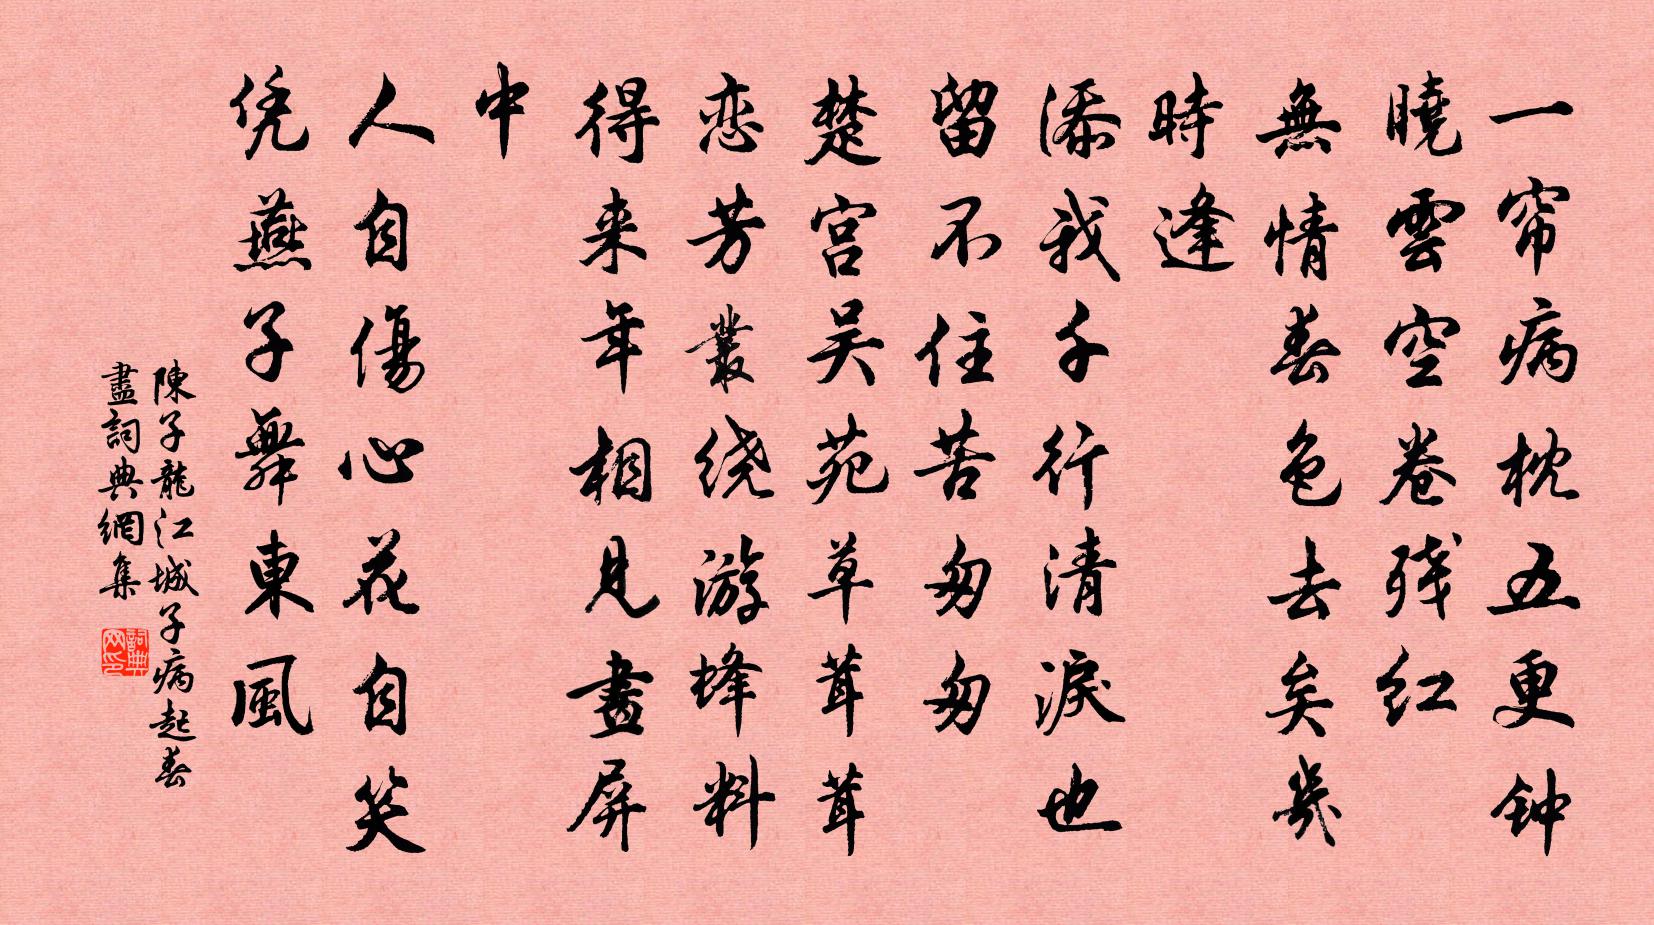 一帘病枕五更钟
曉雲空卷残红
無情春色去矣幾
時逢
添我千行清淚也
留不住苦匆匆
楚宫吴苑草茸茸
恋芳叢绕游蜂料
得来年相見畫屏
中
人自傷心花自笑
凭燕子舞東風
陳子龍江城子病起春
盡詞典網集
詞典网印